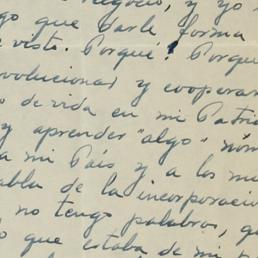 negocio, y yo
go que darle forma
vista. Porqué? Porque
evolucionar y cooperar
o de vida en mi Patria
y aprender "algo"
a mi País y a los me
abla de la incorporació
no tengo palabras, q
o que estaba de mi p